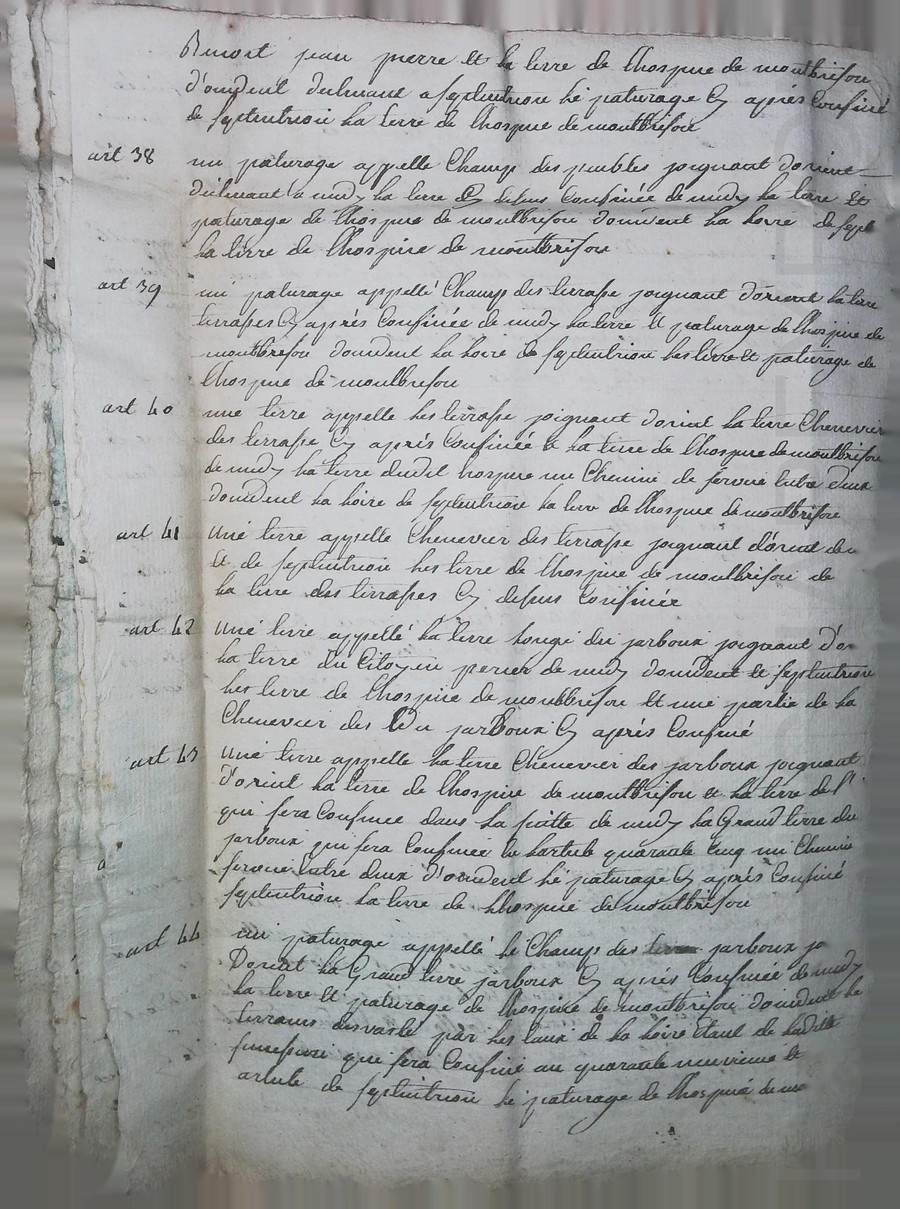 Benoit jean pierre et la terre de lhospice de montbrison
d'occident dudurant a septentrion le paturage cy après confiné
de septentrion la terre de lhospice de montbrison
art 38 un paturage appelle Champ des joignant dorient
a midy la terre cy dessus confinée de midy la terre et
paturage de lhospice de montbrison doccident la loire de sept
la terre de lhospice de montbrison
art 39 un paturage appellé Champ des terrasse joignant dorient la terre
terrasses cy après confinée de midy la terre et paturage de lhospice de
montbrison doccident la loire de septentrion les terre et paturage de
lhospice de montbrison
art 40 une terre appelle les terrasse joignant dorient la terre Chenevier
des terrasse cy après confinée et la terre de lhospice de montbrison
de midy la terre dudit hospice un Chemin de servie entre deux
doccident la loire de septentrion la terre de lhospice de montbrison
art 41 une terre appelle Chenevier des terrasse joignant dorient de
et de septentrion les terre de lhospice de montbrison de
la terre des terrasses cy dessus confinée
art 42 une terre appellé la terre longe du jarboux joignant d'or
la terre du Citoyen perier de midy doccident et septentrion
les terre de lhospice de montbrison et une partie de la
Chenevier des Du jarboux cy après confiné
art 43 une terre appelle la terre Chenevier des jarboux joignant
d'orient la terre de lhospice de montbrison et la terre de l'
qui sera confinée dans la suitte de midy la Grand terre du
jarboux qui sera confinée a larticle quarante cinq un Chemin
servie entre deux d'occident le paturage cy après confiné
septentrion la terre de lhospice de montbrison
art 44 un paturage appellé le Champ des jarboux jo
Dorient la Grand terre jarboux cy après confinée de midy
la terre et paturage de lhospice de montbrison doccident le
terrains desvasté par les eaux de la loire étant de ladite
succession qui sera confiné au quarante neuvieme et
article de septentrion le paturage de lhospice de mo